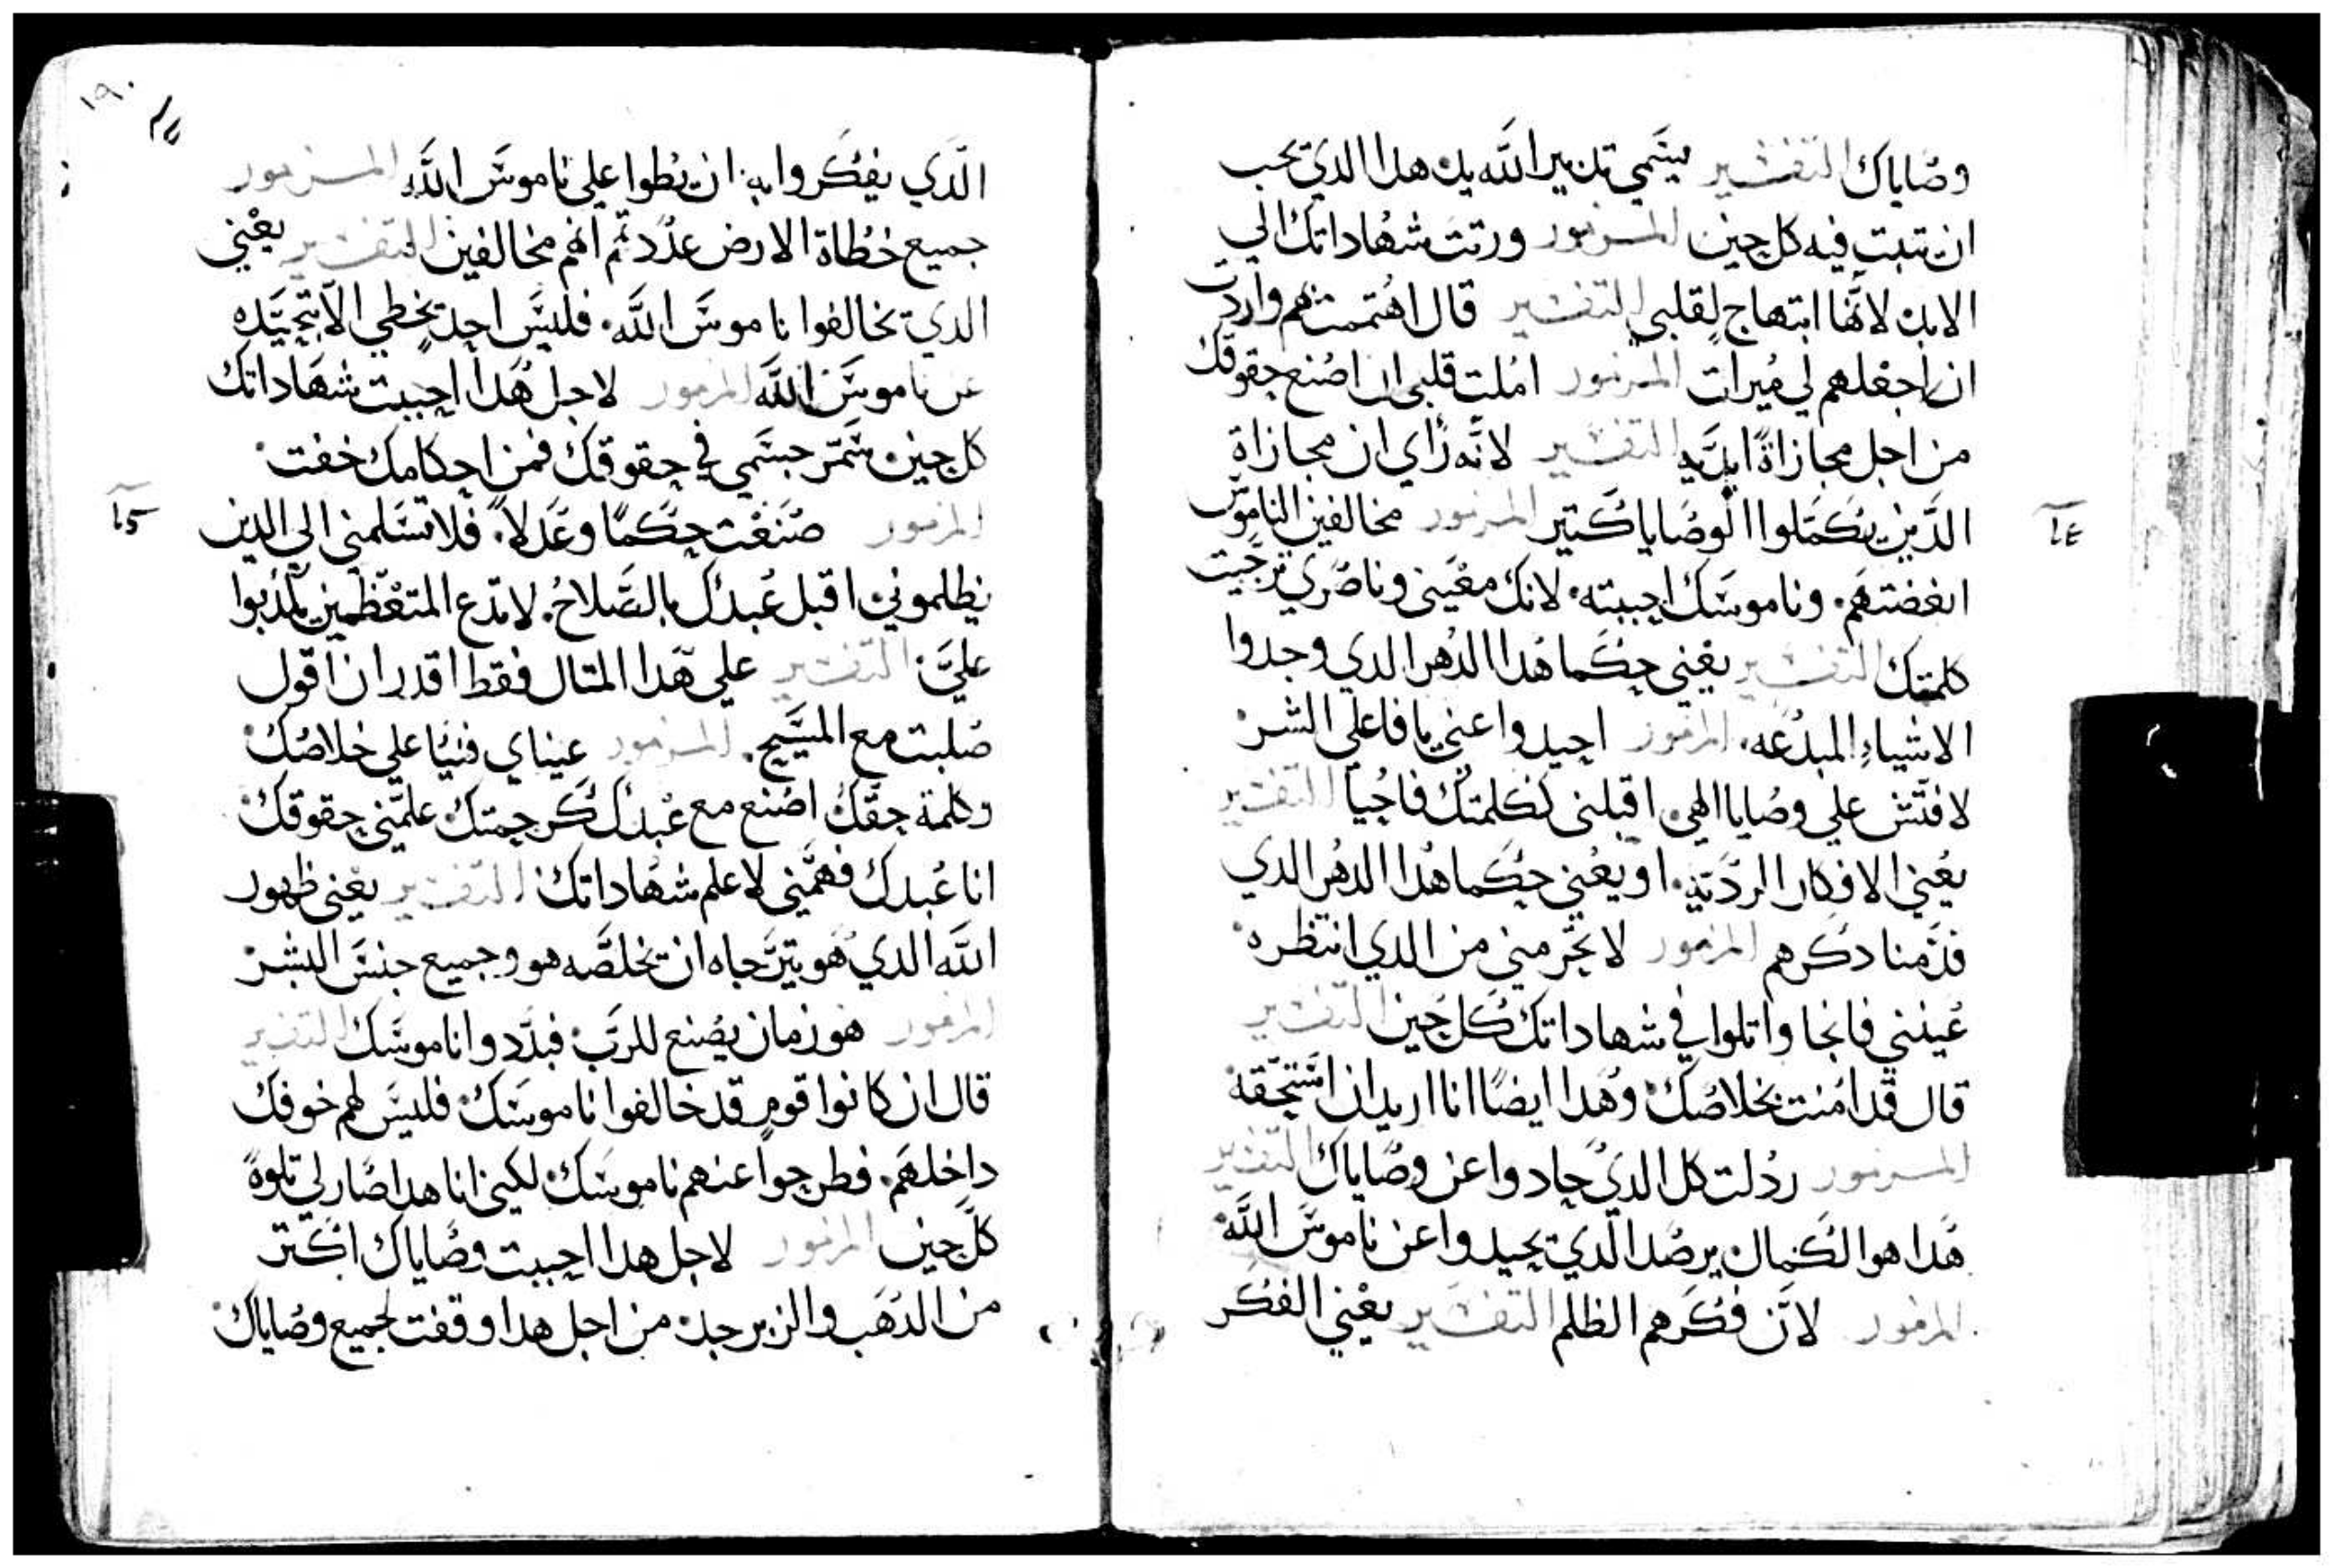 وصاياك التفسير يسمي تدبير الله يد هدا الدي يحب
ان تبت فيه كل حين المزمور ورتت شهاداتك الي
الابد لانها ابتهاج لقلبي التفسير قال اهتممت هم واردت
ان اجعلهم لي ميرات المزمور املت قلبي ان اصنع حقوقك
من اجل مجازاة ابديه التفسير لانه راي ان مجازاة
الدين يكملوا الوصايا كتير المزمور مخالفين الناموس
ابغضتهم. وناموسك احببته. لانك معيني وناصري ترجيت
كلمتك التفسير يعني حكما هدا الدهر الدي وجدوا
الاشياء المبدعه. المزمور احيدوا عني يا فاعلي الشر
لافتش علي وصايا الهي اقبلني لكلمتك فاحيا التفسير
يعني الافكار الرديه. او يعني حكما هدا الدهر الدي
قدمنا دكرهم المزمور لا تحرمني من الدي انتظره
عينني فانجا واتلوا في شهاداتك كل حين التفسير
قال قد امنت بخلاصك وهدا ايضا انا اريد ان استحقه
المزمور ردلت كل الدي حادوا عن وصاياك التفسير
هدا هو الكمال يرصد الدي يحيدوا عن ناموس الله
المزمور لان فكرهم الظلم التفسير يعني الفكر
١٩٠
الدي يفكروا به ان يطوا علي ناموس الله المزمور
جميع خطاة الارض عددتم انهم مخالفين التفسير يعني
الدي تخالفوا ناموس الله. فليس احد يخطي الا بتحيده
عن ناموس الله المزمور لاجل هدا احببت شهاداتك
كل حين سمر جسمي في حقوقك فمن احكامك خفت
المزمور صنعت حكما وعدلا. فلا تسلمني الي الدين
يظلموني اقبل عبدك بالصلاح. لا تدع المتعظمين يكدبوا
علي التفسير علي هدا المتال فقط اقدر ان اقول
صلبت مع المسيح. المزمور عيناي فنيا علي خلاصك
وكلمة حقك اصنع مع عبدك كرحمتك علمني حقوقك
انا عبدك فهمني لاعلم شهاداتك التفسير يعني ظهور
الله الدي هو يترجاه ان يخلصه هو وجميع جنس البشر
المزمور هو زمان يصنع للرب فبددوا ناموسك التفسير
قال ان كانوا قوم قد خالفوا ناموسك فليس لهم خوفك
داخلهم. فطرحوا عنهم ناموسك لكني انا هدا صار لي تلوة
كل حين المزمور لاجل هدا احببت وصاياك اكتر
من الدهب والزبرجد من اجل هدا وقفت لجميع وصاياك